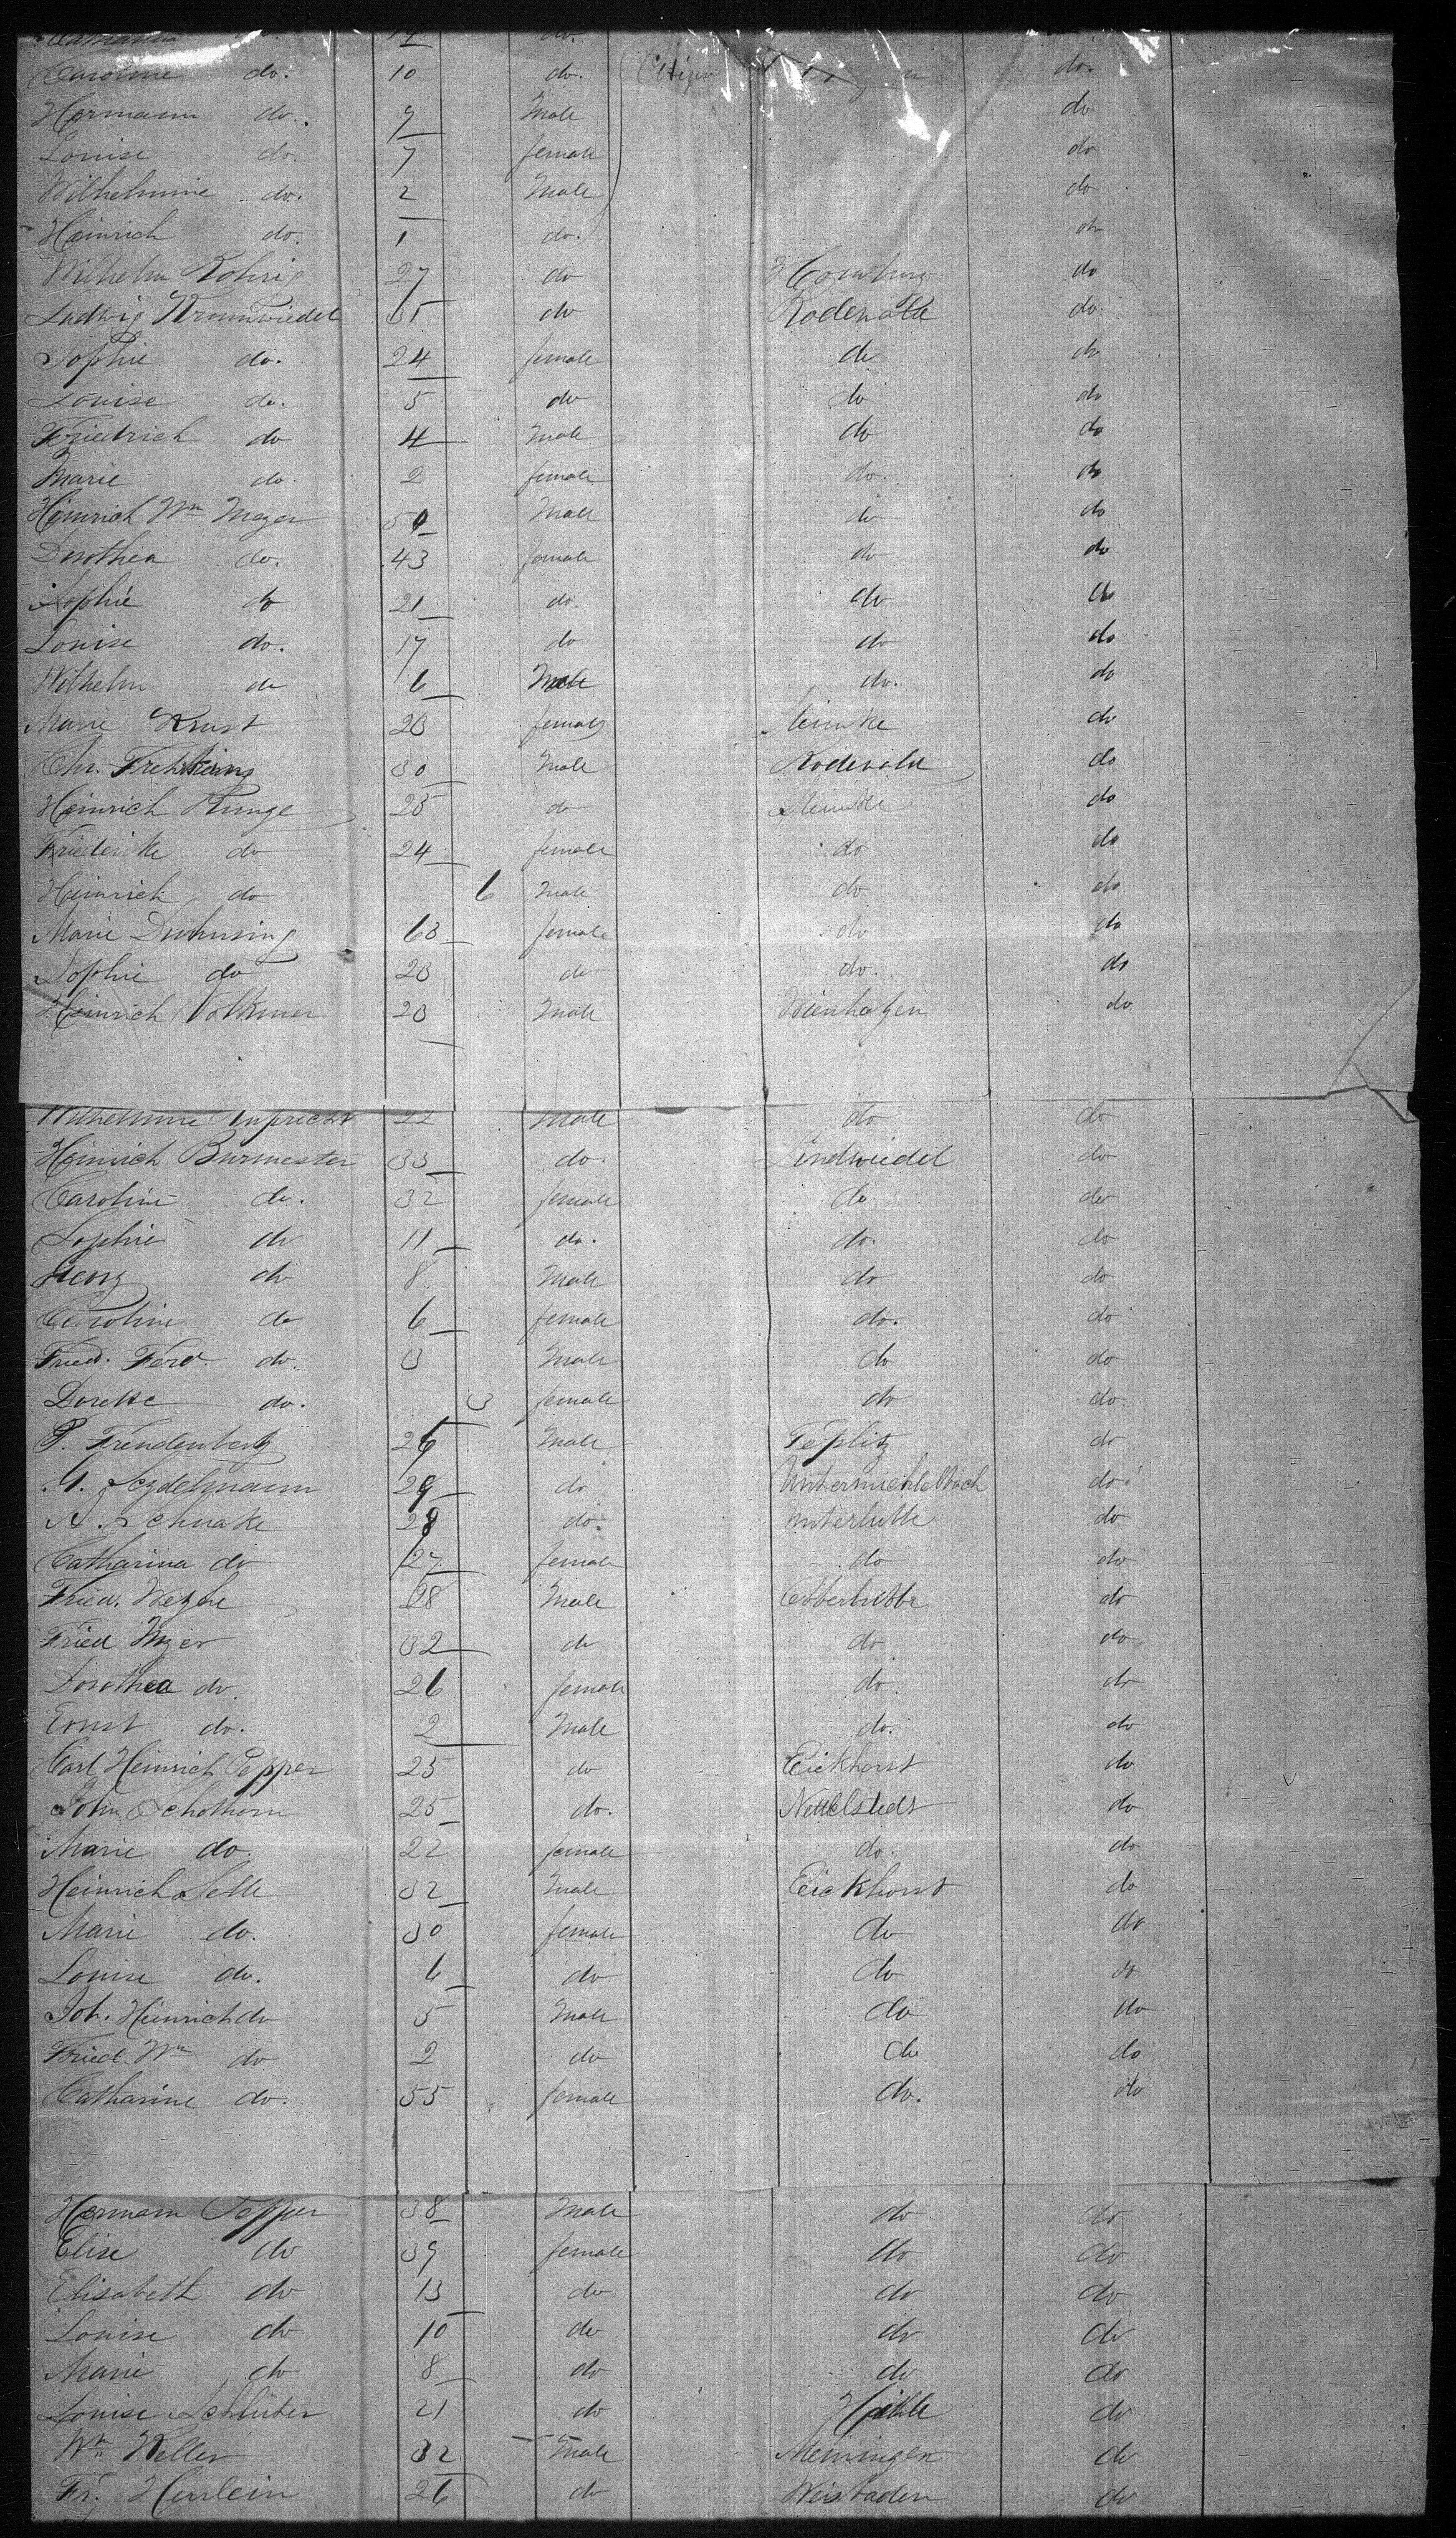 Caroline do. 10 do. do.
Hermann do. 9 Male do
Louise do. 7 female do
Wilhelmine do. 2 Male do
Heinrich do. 1 do. do
Wilhelm Rohrig 27 do Homburg do
Ludwig Krumwiedel 35 do Rodewald do.
Sophie do. 24 female do do
Louise do. 5 do do do
Friedrich do 4 Male do do
Marie do. 2 female do. do
Heinrich Wm Meyer 50 Male do do
Dorothea do. 43 female do do
Sophie do 21 do. do do
Louise do. 17 do do do
Wilhelm do 6 Male do. do
Marie Krust 23 female do
Chr. Frehrking 30 Male Rodewald do
Heinrich Runge 25 do do
Friederike do 24 female do do
Heinrich do 6 Male do do
Marie 63 female do do
Sophie do 23 do do. do
Heinrich Volkmer 23 Male Wienhagen do.
Wilhelmine Ruprecht 22 Male do do
Heinrich Burmester 33 do. Lindwiedel do
Caroline do. 32 female do do
Sophie do 11 do. do. do
Georg do 8 Male do do
Caroline do 6 female do. do
Fried. Ferd. do. 3 Male do do
Dorette do. 3 female do do.
P. Freudenberg 26 Male Teplitz do
G. Seydelmann 29 do Untermichelbach do
A. Schnake 28 do. Unterlutte do
Catharina do 27 female do do
Fried. Wezhe 28 Male do
Fried Myer 32 do do do
Dorothea do. 26 female do. do
Ernst do. 2 Male do. do
Carl Heinrich Pepper 25 do Eickhorst do
John Schothorn 25 do. Nettelstedt do
Marie do. 22 female do. do
Heinrich Selle 32 Male Eickhorst do
Marie do. 30 female do do
Louise do. 6 do do do
Joh. Heinrich do 5 Male do do
Fried. Wm do 2 do do do
Catharine do. 55 female do. do
Hermann Pepper 38 Male do do
Elise do 39 female do do
Elisabeth do 13 do do do
Louise do 10 do do do
Marie do 8 do do do
Louise Schluter 21 do Hille do
Wm Keller 32 Male Meiningen do
Fr. Herrlein 26 do Weisbaden do